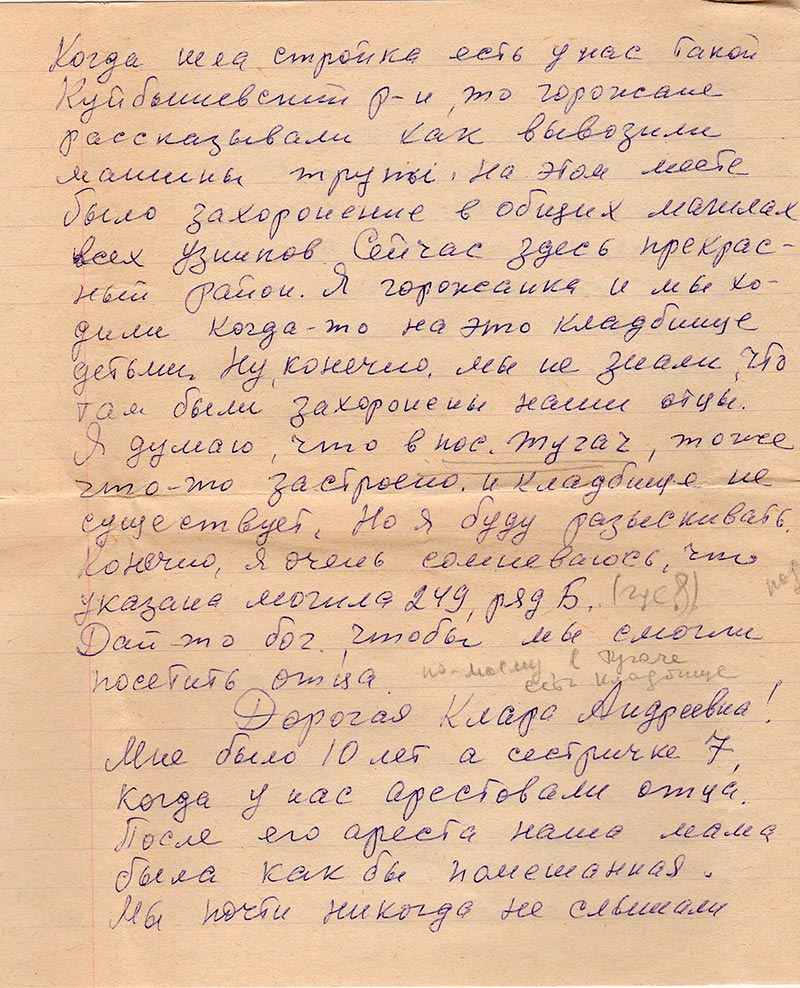 Когда шла стройка есть у нас такой
Куйбышевский р-н, то горожане
рассказывали как вывозили
машины трупы. На этом месте
было захоронение в общих магилах
всех узников. Сейчас здесь прекрас-
ный район. Я горожанка и мы хо-
дили когда-то на это кладбище
детьми. Ну, конечно, мы не знали, что
там были захоронены наши отцы.
Я думаю, что в пос. Тугач, тоже
что-то застроено. и кладбище не
существует. Но я буду разыскивать.
Конечно, я очень сомневаюсь, что
указана могила 249, ряд Б. (где?)
Дай-то бог, чтобы мы смогли
посетить отца. по-моему в Тугаче
есть кладбище
Дорогая Клара Андреевна!
Мне было 10 лет а сестричке 7,
когда у нас арестовали отца.
После его ареста наша мама
была как бы помешанная.
Мы почти никогда не слышали